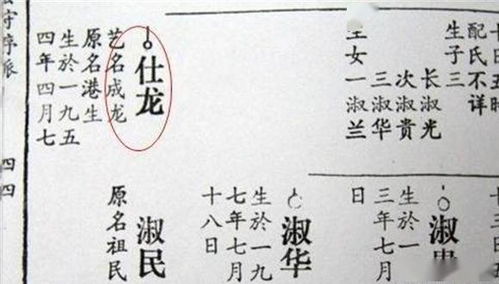 配氏不详
生子三
长淑光
次淑贵
三淑华
生女一淑兰
仕龙
艺名成龙
原名港生
生於一九五
四年四月七
十三
淑
生於一
三年七月
日
淑华
生於一九
七年七月
十八日
淑民
原名祖民
守序派
四四